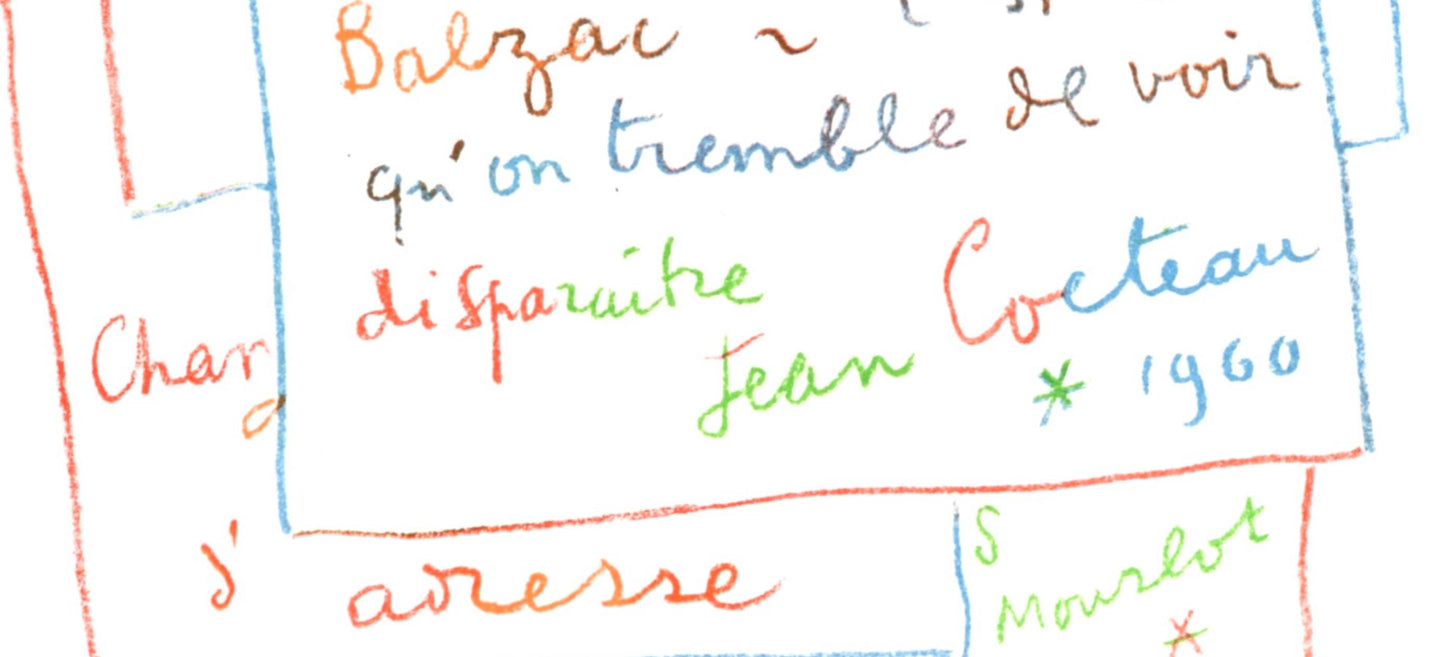 Balzac ~
qu'on tremble de voir
disparaître
Jean Cocteau
* 1960
Chan
d'adresse
S
Mourlot
*